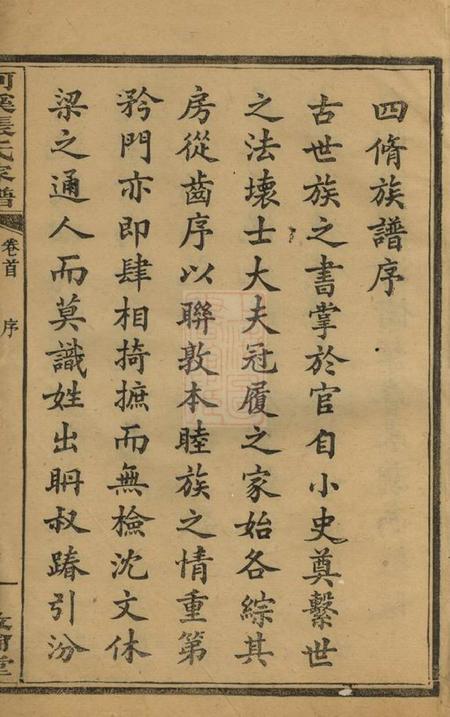 四脩族譜序
古世族之書掌於官自小史奠繫世
之法壞士大夫冠履之家始各綜其
房從齒序以聯敦本睦族之情重第
矜門亦即肆相掎摭而無檢沈文休
梁之通人而莫識姓出聃叔踳引汾
張氏家譜
卷首
序